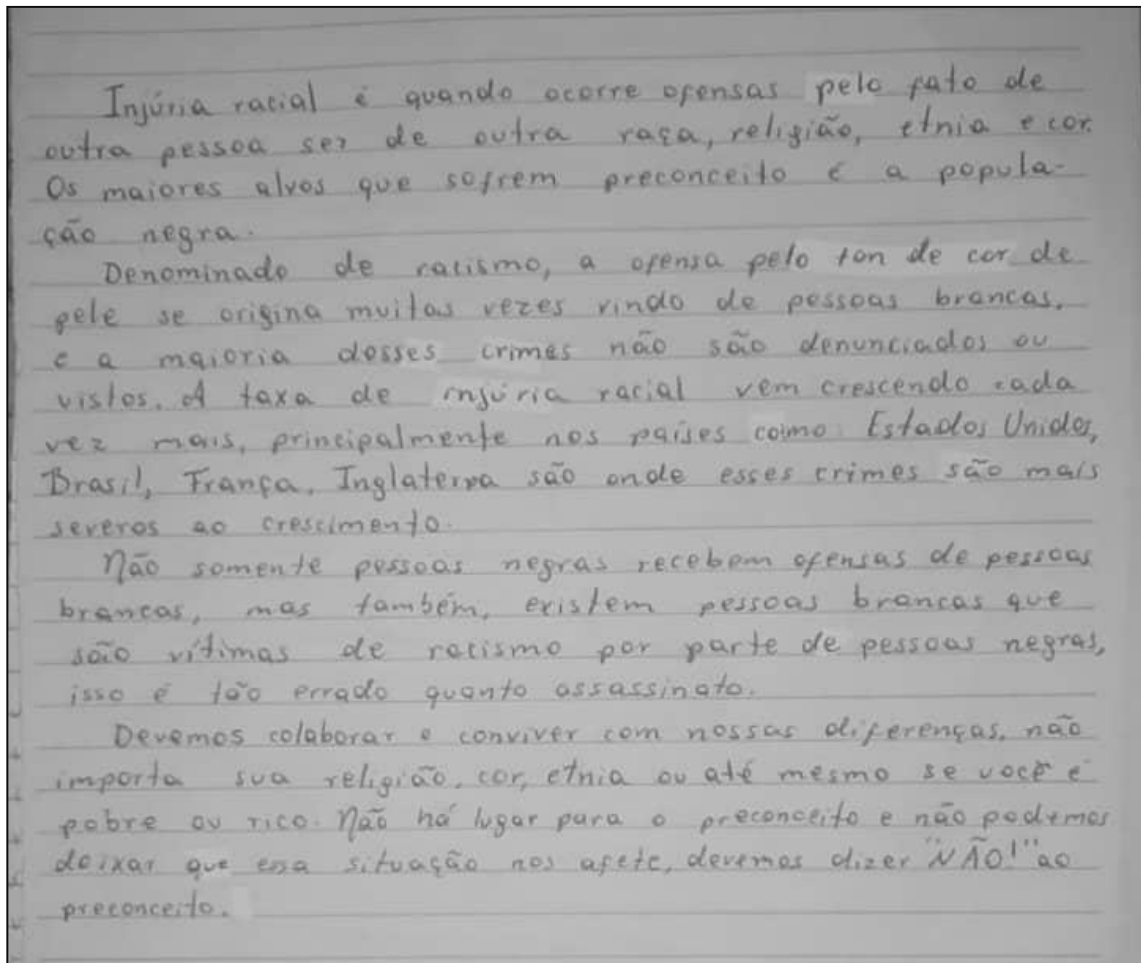 Injúria racial é quando ocorre ofensas pelo fato de
outra pessoa ser de outra raça, religião, etnia e cor.
Os maiores alvos que sofrem preconceito é a popula-
ção negra.
Denominado de racismo, a ofensa pelo ton de cor de
pele se origina muitas vezes vindo de pessoas brancas,
e a maioria desses crimes não são denunciados ou
vistos. A taxa de injúria racial vem crescendo cada
vez mais, principalmente nos países como Estados Unidos,
Brasil, França, Inglaterra são onde esses crimes são mais
severos ao crescimento.
Não somente pessoas negras recebem ofensas de pessoas
brancas, mas também, existem pessoas brancas que
são vítimas de racismo por parte de pessoas negras,
isso é tão errado quanto assassinato.
Devemos colaborar e conviver com nossas diferenças, não
importa sua religião, cor, etnia ou até mesmo se você é
pobre ou rico. Não há lugar para o preconceito e não podemos
deixar que essa situação nos afete, devemos dizer "NÃO!" ao
preconceito.